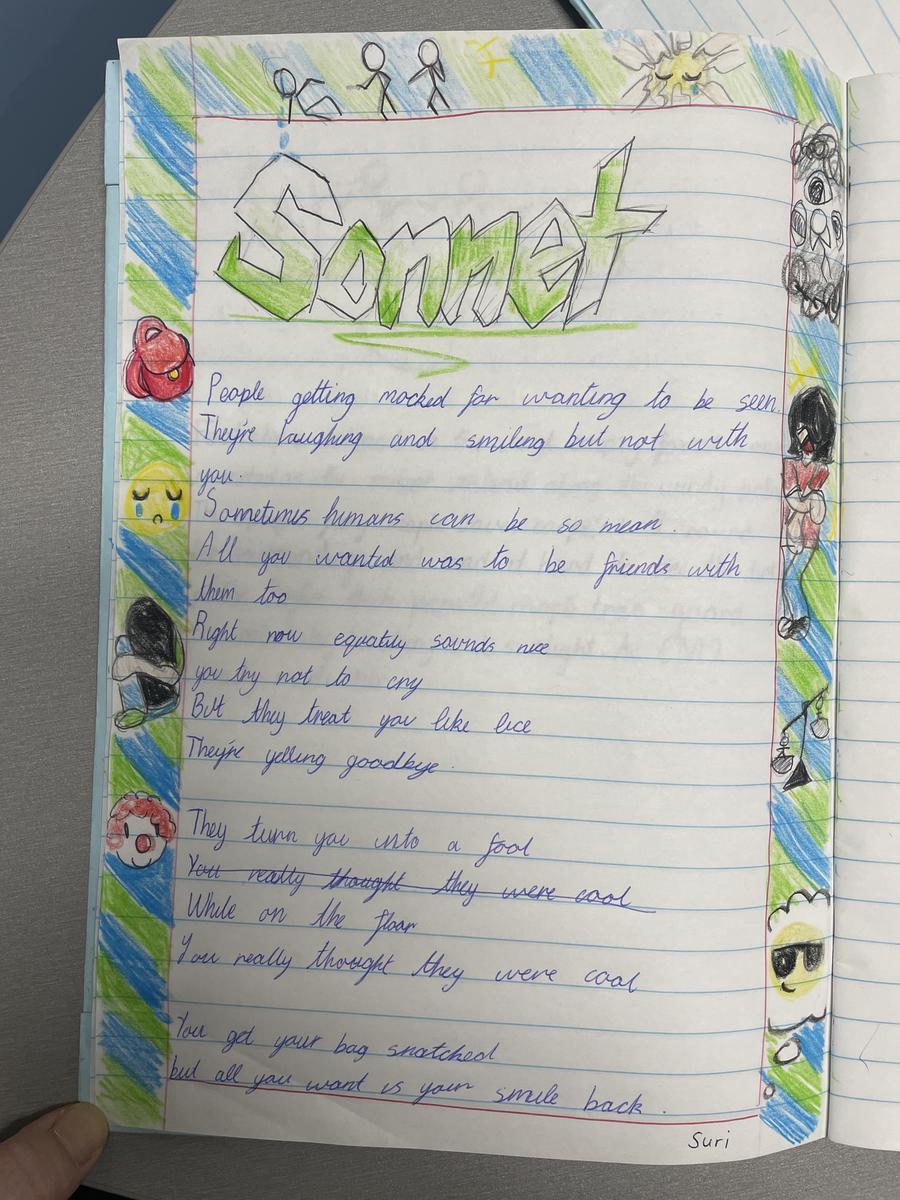 Sonnet
People getting mocked for wanting to be seen.
They're laughing and smiling but not with
you.
Sometimes humans can be so mean.
All you wanted was to be friends with
them too
Right now equatily sounds nice
you try not to cry
But they treat you like lice
They're yelling goodbye.
They turn you into a fool
You really thought they were cool
While on the floor
You really thought they were cool
You get your bag snatched
but all you want is your smile back.
Suri